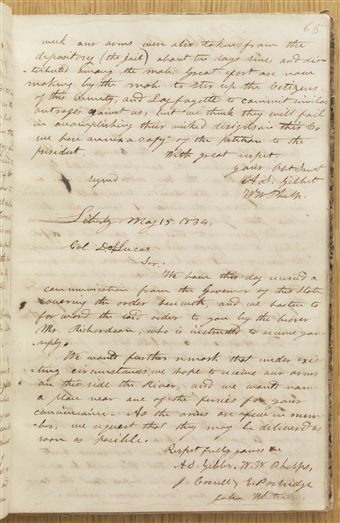 65
week our arms were also taken from the
depository (the jail) about ten days since and dis-
tributed among the mob. Great efort are now
making by the mob to stir up the Citizens
of this County, and Lafayette to commit similar
outrages against us; but we think they will fail
in accomplishing their wicked designs in this Co
we here annex a copy of the petition to the
president. With great respet.
yours Obt Svnt
Signed A. S. Gilbert
W W Phelps.
Liberty May 15. 1834.
Col Lucas
Sir.
We have this day received a
communication from the Governor of this State
covering the order herewith, and we hasten to
forword the said order to you by the bearer
Mr. Richardson, who is instructed to receive your
reply.
We would further remark that under exis-
ting circumstances, we hope to receive our arms
on this side the River, and we would name
a place near one of the ferries for your
convenience. As the arms are few in num-
ber, we request that they may be delivered as
soon as posible.
Respetfully yours
A. S. Gilber, W. W. Phelps,
J. Corrill, E. Partridge
John